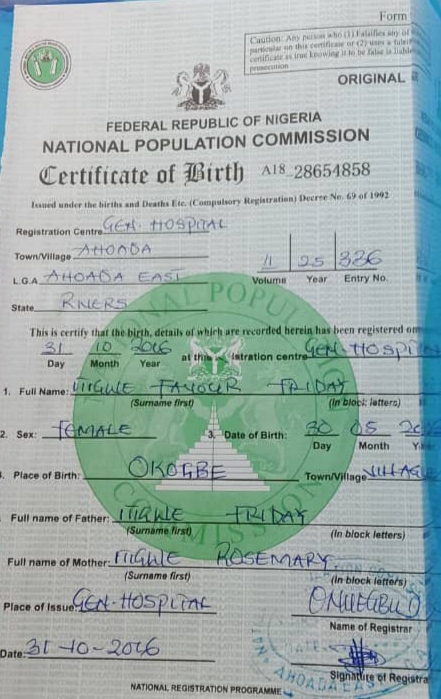 Form
Caution: Any person who (1) Falsifies any of
particular on this certificate or (2) uses a
certificate as true knowing it to be false is liable
prosecution
ORIGINAL
FEDERAL REPUBLIC OF NIGERIA
NATIONAL POPULATION COMMISSION
Certificate of Birth A18 28654858
Issued under the births and Deaths Etc. (Compulsory Registration) Decree No. 69 of 1992
Registration Centre GEN. HOSPITAL
Town/Village AHOADA
L.G.A AHOADA EAST
State RIVERS
25 336
Volume Year Entry No.
This is certify that the birth, details of which are recorded herein has been registered on
31 10 2016 at this istration centre GEN HOSPITAL
Day Month Year
1. Full Name: FAVOUR FRIDAY
(Surname first) (In block letters)
2. Sex: FEMALE 3. Date of Birth: 30 05
Day Month
Place of Birth: OKOGBE Town/Village VILLAGE
Full name of Father: FRIDAY
(Surname first) (In block letters)
Full name of Mother: ROSEMARY
(Surname first) (In block letters)
Place of Issue: GEN-HOSPITAL
Name of Registrar
Date: 31-10-2016
Signature of Registra
NATIONAL REGISTRATION PROGRAMME